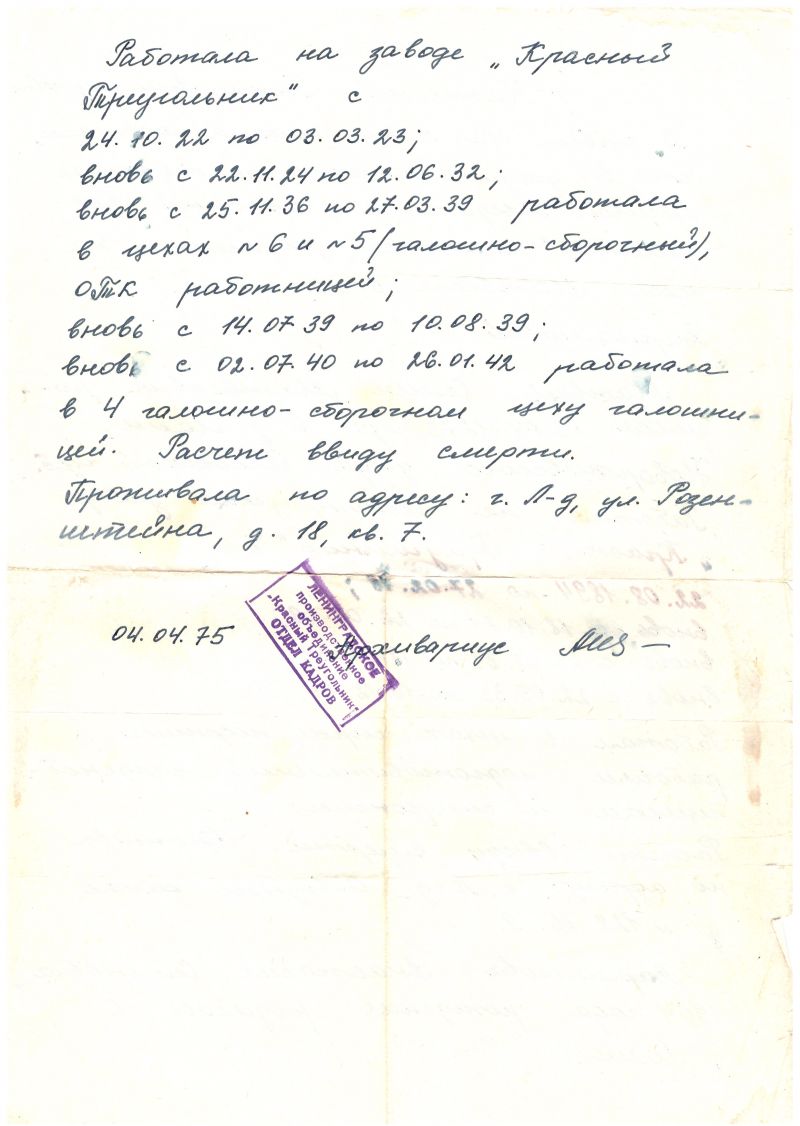 Работала на заводе „Красный
Треугольник“ с
24.10.22 по 03.03.23;
вновь с 22.11.24 по 12.06.32;
вновь с 25.11.36 по 27.03.39 работала
в цехах №6 и №5 (галошно-сборочный),
ОТК работницей;
вновь с 14.07.39 по 10.08.39;
вновь с 02.07.40 по 26.01.42 работала
в 4 галошно-сборочном цеху галошни-
цей. Расчет ввиду смерти.
Проживала по адресу: г. Л-д, ул. Розен-
штейна, д. 18, кв. 7.
04.04.75 Архивариус
ЛЕНИНГРАДСКОЕ
производственное
объединение
„Красный Треугольник“
ОТДЕЛ КАДРОВ